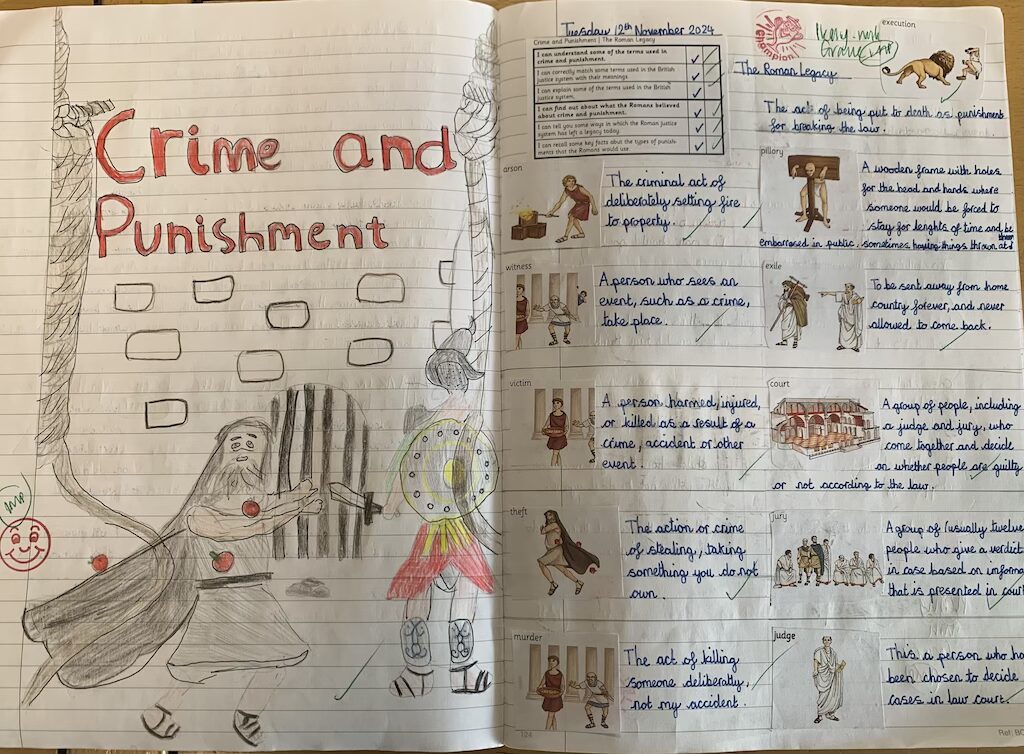 Crime and
Punishment
Tuesday 12th November 2024
Crime and Punishment | The Roman Legacy
I can understand some of the terms used in
crime and punishment.
I can correctly match some terms used in the British
justice system with their meanings.
I can explain some of the terms used in the British
justice system.
I can find out about what the Romans believed
about crime and punishment.
I can tell you some ways in which the Roman justice
system has left a legacy today.
I can recall some key facts about the types of punish-
ments that the Romans would use.
arson
The criminal act of
deliberately setting fire
to property.
witness
A person who sees an
event, such as a crime,
take place.
victim
A person harmed, injured,
or killed as a result of a
crime, accident or other
event.
theft
The action or crime
of stealing, taking
something you do not
own.
murder
The act of killing
someone deliberatly,
not my accident.
124
champion
The Roman Legacy
execution
The act of being put to death as punishment
for breaking the law.
pillory
A wooden frame with holes
for the head and hands where
someone would be forced to
stay for lenghts of time and be
embarrased in public. sometimes having things thrown at them
exile
To be sent away from home
country forever, and never
allowed to come back.
court
A group of people, including
a judge and jury, who
come together and decide
on whether people are guilty
or not according to the law.
jury
A group of (usually twelve
people who give a verdict
in case based on informa
that is presented in court
judge
This a person who ha
been chosen to decide
cases in law court.
Ref: BC